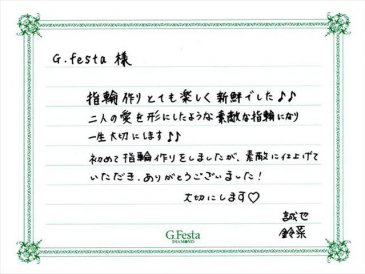 G.festa 様
指輪作りとても楽しく新鮮でした♪♪
二人の愛を形にしたような素敵な指輪になり
一生大切にします♪♪
初めて指輪作りをしましたが、素敵に仕上げて
いただき、ありがとうございました!
大切にします♡
誠也
鈴菜
G.Festa
DIAMOND